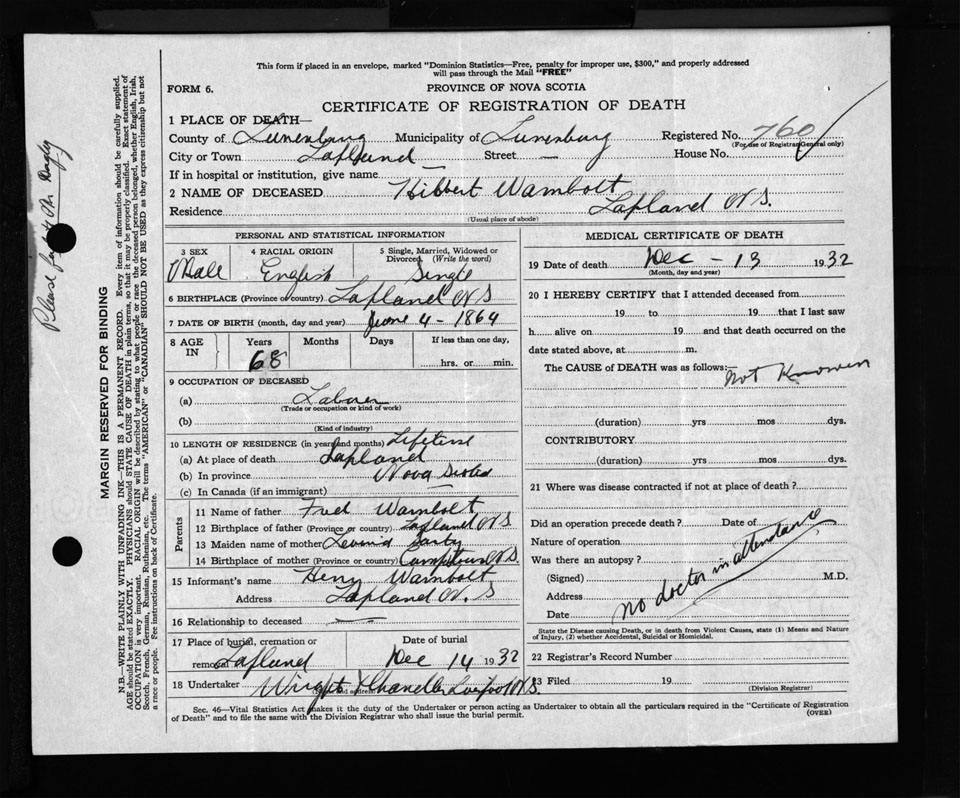 This form if placed in an envelope, marked "Dominion Statistics—Free, penalty for improper use, $300," and properly addressed
will pass through the Mail "FREE"
FORM 6.
PROVINCE OF NOVA SCOTIA
CERTIFICATE OF REGISTRATION OF DEATH
1 PLACE OF DEATH—
County of Lunenburg Municipality of Lunenburg Registered No. 760
(For use of Registrar General only)
City or Town Lapland Street — House No.
If in hospital or institution, give name —
2 NAME OF DECEASED Hibbert Wambolt
Residence Lapland N S.
(Usual place of abode)
PERSONAL AND STATISTICAL INFORMATION
3 SEX 4 RACIAL ORIGIN 5 Single, Married, Widowed or
Divorced (Write the word)
Male English Single
6 BIRTHPLACE (Province or country) Lapland N S
7 DATE OF BIRTH (month, day and year) June 4 - 1864
8 AGE IN Years Months Days If less than one day,
68 hrs. or min.
9 OCCUPATION OF DECEASED
(a) Laborer
(Trade or occupation or kind of work)
(b)
(Kind of industry)
10 LENGTH OF RESIDENCE (in years and months) Lifetime
(a) At place of death Lapland
(b) In province Nova Scotia
(c) In Canada (if an immigrant) —
Parents
11 Name of father Fred Wambolt
12 Birthplace of father (Province or country) Lapland N S
13 Maiden name of mother
14 Birthplace of mother (Province or country) N S.
15 Informant's name Henry Wambolt
Address Lapland N. S
16 Relationship to deceased —
17 Place of burial, cremation or
removal Lapland
Date of burial
Dec 14 1932
18 Undertaker Wright Chandler N S.
(Name and address)
MEDICAL CERTIFICATE OF DEATH
19 Date of death Dec - 13 1932
(Month, day and year)
20 I HEREBY CERTIFY that I attended deceased from
19 to 19 that I last saw
h alive on 19 and that death occurred on the
date stated above, at m.
The CAUSE of DEATH was as follows: Not Known
(duration) yrs mos dys.
CONTRIBUTORY
(duration) yrs mos dys.
21 Where was disease contracted if not at place of death?
Did an operation precede death? Date of
Nature of operation
Was there an autopsy?
(Signed) M.D.
Address
Date
no doctor in attendance
State the Disease causing Death, or in death from Violent Causes, state (1) Means and Nature
of Injury, (2) whether Accidental, Suicidal or Homicidal.
22 Registrar's Record Number
23 Filed 19
(Division Registrar)
Sec. 46—Vital Statistics Act makes it the duty of the Undertaker or person acting as Undertaker to obtain all the particulars required in the "Certificate of Registration
of Death" and to file the same with the Division Registrar who shall issue the burial permit.
(OVER)
MARGIN RESERVED FOR BINDING
N.B.—WRITE PLAINLY WITH UNFADING INK—THIS IS A PERMANENT RECORD. Every item of information should be carefully supplied.
AGE should be stated EXACTLY. PHYSICIANS should STATE CAUSE OF DEATH in plain terms, so that it may be properly classified. Exact statement of
OCCUPATION is very important. RACIAL ORIGIN will be described by stating to what people or race the deceased person belonged, whether English, Irish,
Scotch, French, German, Russian, Ruthenian, etc. The terms "AMERICAN" or "CANADIAN" SHOULD NOT BE USED as they express citizenship but not
a race or people. Fee instructions on back of Certificate.
Please